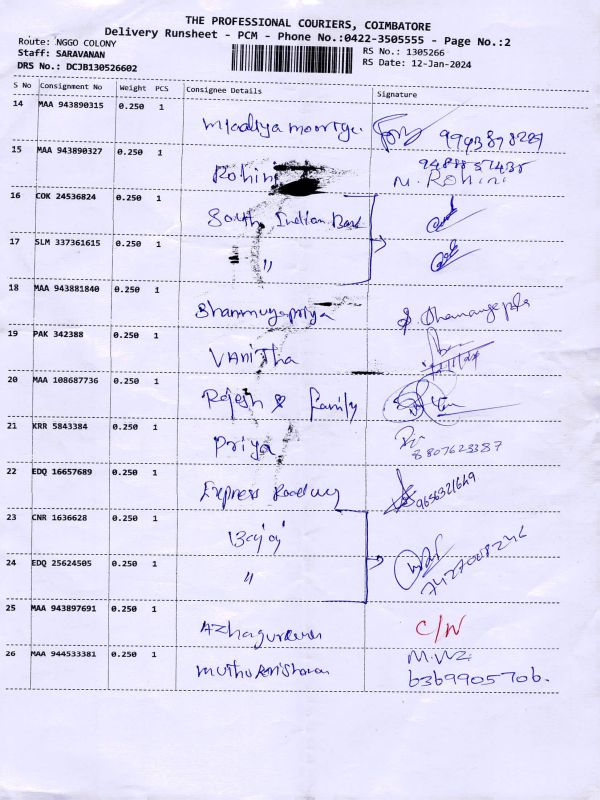 THE PROFESSIONAL COURIERS, COIMBATORE
Delivery Runsheet - PCM - Phone No.:0422-3505555 - Page No.:2
Route: NGGO COLONY
Staff: SARAVANAN
DRS No.: DCJB130526602
RS No.: 1305266
RS Date: 12-Jan-2024
S No Consignment No Weight PCS Consignee Details Signature
14 MAA 943890315 0.250 1
15 MAA 943890327 0.250 1 Rohini M. Rohini
16 COK 24536824 0.250 1 South Indian Bank
17 SLM 337361615 0.250 1 "
18 MAA 943881840 0.250 1 Shanmugapriya
19 PAK 342388 0.250 1 Vanitha
20 MAA 108687736 0.250 1 Rajesh & family
21 KRR 5843384 0.250 1 Priya 8807623387
22 EDQ 16657689 0.250 1 Express Roadway 9656321649
23 CNR 1636628 0.250 1 Bajaj
24 EDQ 25624505 0.250 1 " 7427008246
25 MAA 943897691 0.250 1 C/N
26 MAA 944533381 0.250 1 6369905706.